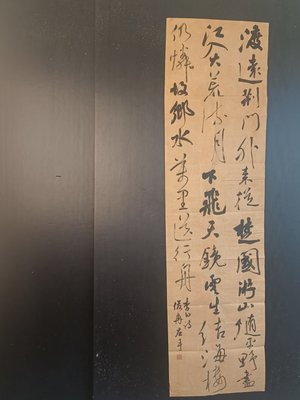 渡遠荆門外来從楚國游山隨平野盡
江入大荒流月下飛天鏡雲生結海樓
仍憐故鄉水萬里送行舟
李白诗